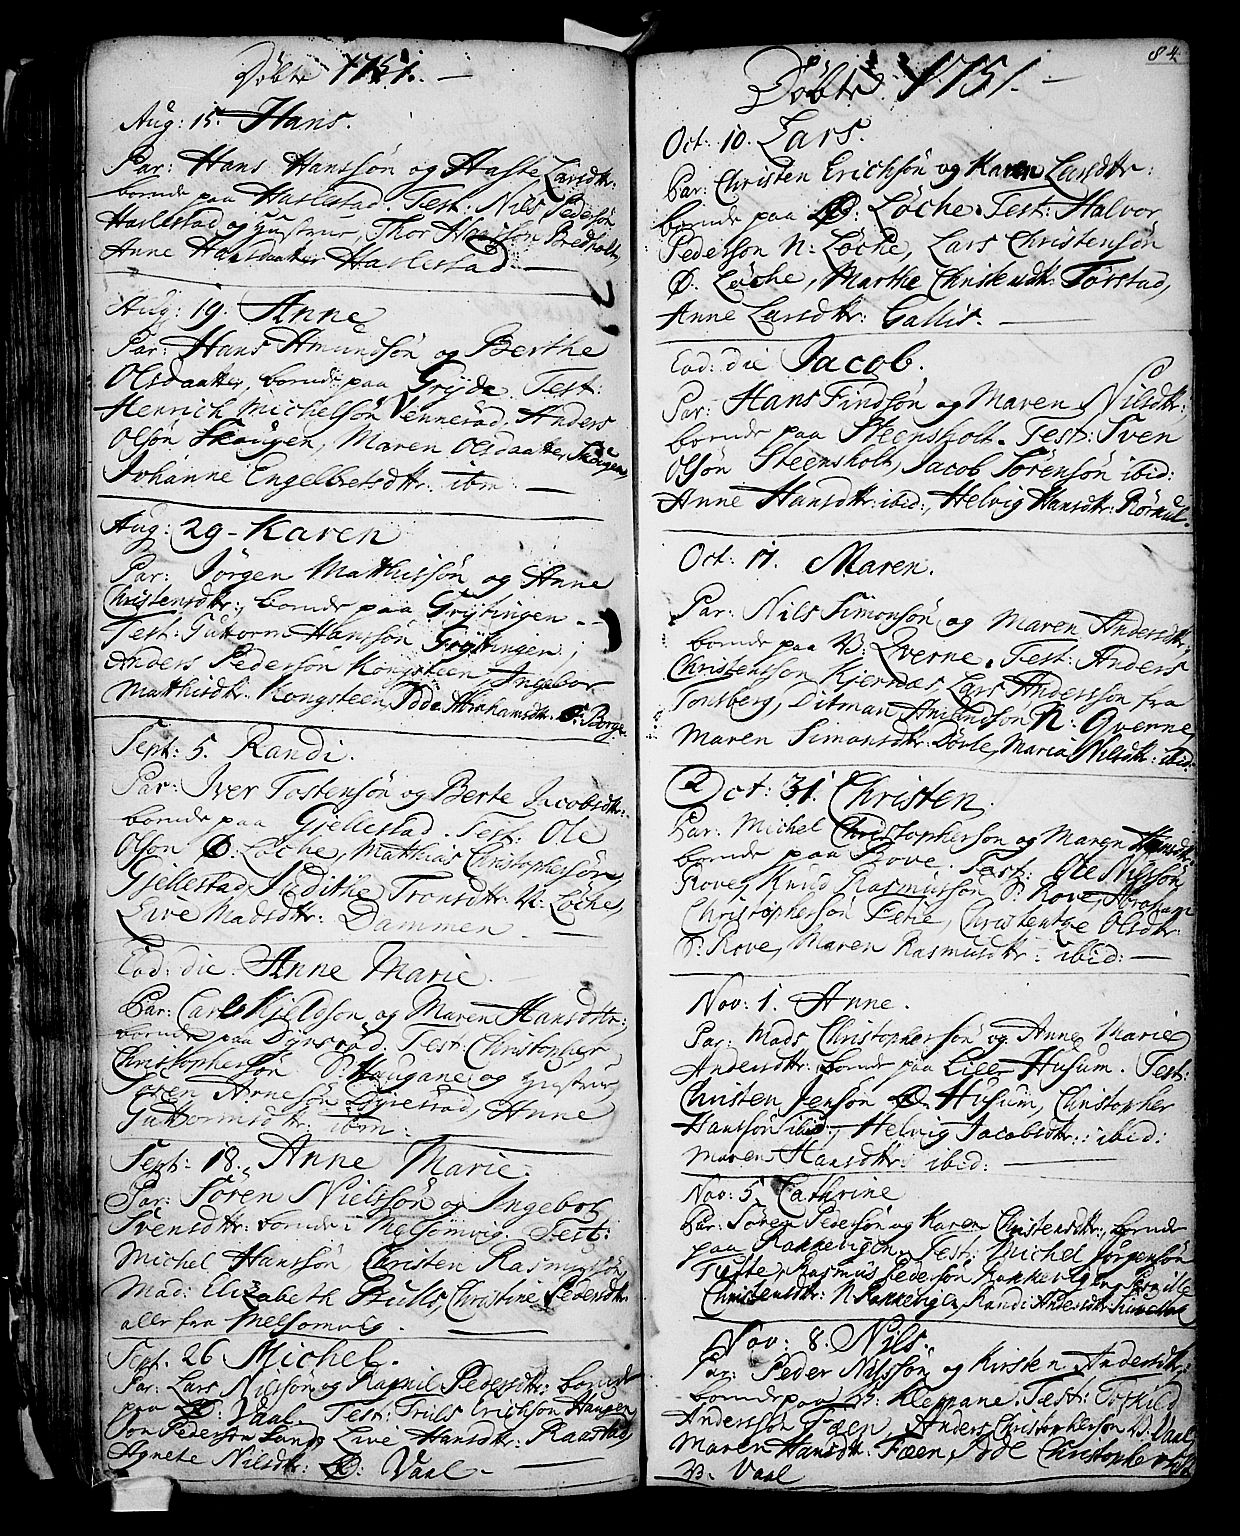 Döbte 1751. —
Aug: 15. Hans.
Par: Hans Hanssön og Aaste Larsdtr:
boende paa Haslestad. Test: Nils Pederson
Haslestad og Hustrue, Thor Hansson Bredholt,
Anne Hansdaatter Haslestad. —
Aug: 19. Anne
Par: Hans Amundsön og Berthe
Olsdaatter, boende paa Gryde. Test:
Henrich Michelsön Vennerød, Anders
Olsön Skougen, Maren Olsdaatter Skougen,
Johanne Engelbretsdtr: ibm —
Aug: 29 - Karen
Par: Jörgen Mathissön og Anne
Christensdtr:, boende paa Grytingen. -
Test: Guttorm Hanssön Grytingen,
Anders Pedersön Kongsteen, Ingebor
Mathisdtr. Kongsteen, Ydde Abrahamsdtr. S: Borge.
Sept: 5. Randi.
Par: Iver Tostensön og Berte Jacobsdtr:
boende paa Gjellestad. Test: Ole
Olsön Ø: Løche, Mathias Christophersön
Gjellestad, Sidithe Tronsdtr: N: Løche,
Live Madsdtr: Dammen. —
Eod: die. Anne Marie.
Par: Carl Kjeldson og Maren Hansdtr:
boende paa Dyrsröd. Test: Christopher
Christophersön S: Haugane og Hustrue,
Sören Arnesön Dyrestad, Anne
Guttormsdtr: ibm:
Sept: 18. Anne Marie.
Par: Sören Nielssön og Ingebor
Svensdtr: boende i Melsomvig. Test:
Michel Hanssön Christen Rasmussön
Mad: Elizabeth Bulls, Christine Pedersdtr
alle fra Melsomvig. —
Sept. 26 Michel.
Par: Lars Nilssön og Ragnil Pedersdtr: boende
paa Ø: Vaal. Test: Truls Erichson Haugen
Jon Pederson Lands Live Hansdtr: Raastad,
Agnete Nilsdtr: Ø: Vaal —
84
Döbte 1751. —
Oct: 10. Lars.
Par: Christen Erichsön og Karen Larsdtr:
boende paa Ø: Løche. Test: Halvor
Pederson N: Løche, Lars Christensön
Ø. Løche, Marthe Christensdtr: Torstad,
Anne Larsdtr: Gallis. —
Eod: die Jacob.
Par: Hans Findsön og Maren Nilsdtr:
boende paa Steensholt. Test: Sven
Olsön Steensholt, Jacob Sörensön ibid:
Anne Hansdtr: ibid:, Helvig Hansdtr: Rörkul.
Oct: 17. Maren.
Par: Nils Simonsön og Maren Andersdtr,
boende paa V: Qverne. Test: Anders
Christensson Kjernaes, Lars Andersson fra
Tonsberg, Ditman Amundson N: Qverne
Maren Simonsdtr: Dövle, Maria Nilsdtr: ibid:
Oct: 31. Christen.
Par: Michel Christopherson og Maren Hansdtr:
boende paa Rove. Test: Ole Nilssön
Rove, Knud Rasmusson S: Rove, Abraham
Christophersön Fetie, Christentze Olsdtr:
S: Rove, Maren Rasmusdtr: ibid: —
Nov: 1. Anne.
Par: Mads Christophersön og Anne Marie
Andersdtr: boende paa Lille Husum. Test:
Christen Jensön Ø. Husum, Christopher
Hanssön ibid:, Helvig Jacobsdtr: ibid:
Maren Hansdtr: ibid: —
Nov: 5. Cathrine
Par: Sören Pedersön og Karen Christensdtr:, boende
paa Rakkevigen. Test: Michel Jörgensön
Tufte, Rasmus Pedersön Rakkevigen,
Christensdtr: N Rakkevigen, Randi Andersdtr:
Nov: 8. Nils.
Par: Peder Nilssön og Kirsten Andersdtr:
boende paa V: Kleppane. Test: Torkild
Andersson Fæen, Anders Christopherson V: Vaal
Maren Hansdtr: Fæen, Idde Christophersdtr
V: Vaal